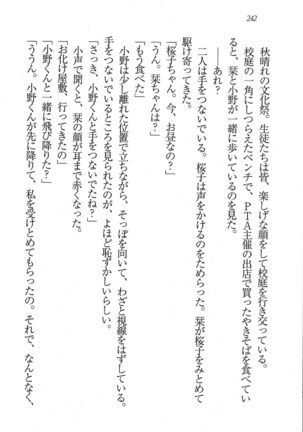 242
秋晴れの文化祭。生徒たちは皆、楽しげな顔をして校庭を行き交っている。
校庭の一角にしつらえたベンチで、PTA主催の出店で買ったやきそばを食べてい
ると、栞と小野が一緒に歩いているのを見た。
――あれ?
二人は手をつないでいる。桜子は声をかけるのをためらった。栞が桜子をみとめて
駆け寄ってきた。
「桜子ちゃん。今、お昼なの?」
「うん。栞ちゃんは?」
「もう食べた」
小野は少し離れた位置で立ちながら、そっぽを向いて、わざと視線をはずしている。
手をつないでいるところを見られたのが、よほど恥ずかしいらしい。
「さっき、小野くんと手をつないでたね?」
小声で聞くと、栞の顔が耳まで赤くなった。
「お化け屋敷、行ってきたの」
「小野くんと一緒に飛び降りた?」
「ううん。小野くんが先に降りて、私を受けとめてもらったの。それで、なんとなく、